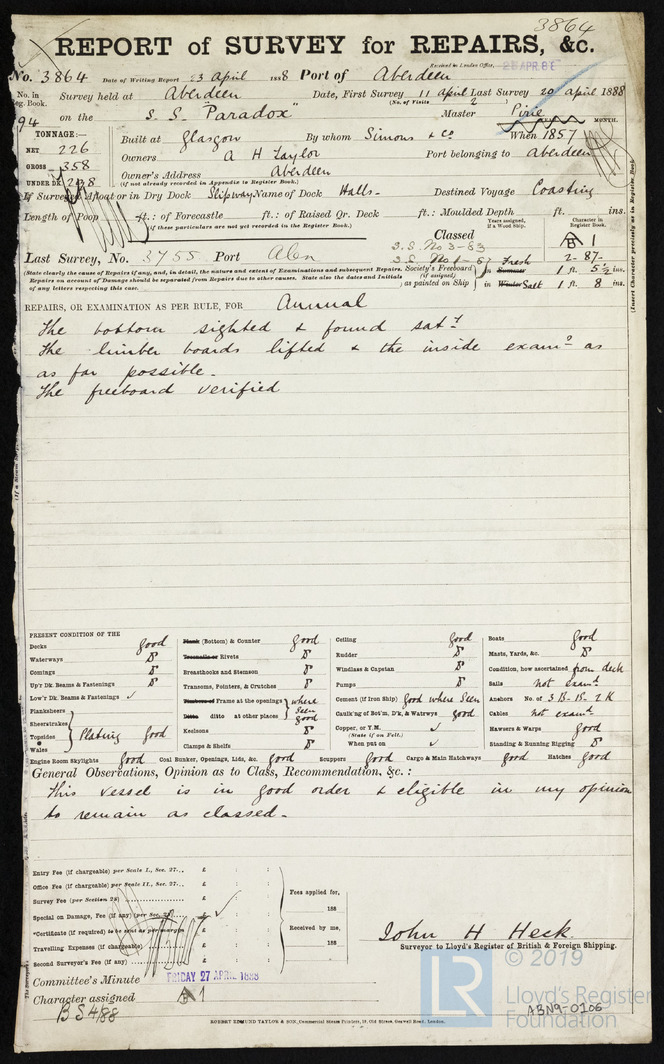 3864
REPORT of SURVEY for REPAIRS, &c.
Received in London Office, 25 APR. 88
No. 3864 Date of Writing Report 23 April 1888 Port of Aberdeen
No. in Reg. Book. Survey held at Aberdeen Date, First Survey 11 April Last Survey 20 April 1888
(No. of Visits 2
94 on the S. S. "Paradox" Master Pirie
TONNAGE:—
NET 226
GROSS 358
UNDER DK.
Built at Glasgow By whom Simons & Co When 1857 MONTH.
Owners A H Taylor Port belonging to Aberdeen
Owner's Address Aberdeen
(if not already recorded in Appendix to Register Book.)
If Surveyed Afloat or in Dry Dock Slipway Name of Dock Halls- Destined Voyage Coasting
Length of Poop ft.: of Forecastle ft.: of Raised Qr. Deck ft.: Moulded Depth ft. ins.
(if these particulars are not yet recorded in the Register Book.)
Classed
Years assigned, if a Wood Ship.
Character in Register Book.
S.S. No 3-83
A 1
Last Survey, No. 3755 Port Aben
S.S. No 1-87
2-87-
(State clearly the cause of Repairs if any, and, in detail, the nature and extent of Examinations and subsequent Repairs.
Repairs on account of Damage should be separated from Repairs due to other causes. State also the dates and Initials
of any letters respecting this case.
Society's Freeboard (if assigned) as painted on Ship
in Summer Fresh 1 ft. 5½ ins.
in Winter Salt 1 ft. 8 ins.
(Insert Character precisely as in Register Book.
REPAIRS, OR EXAMINATION AS PER RULE, FOR Annual
The bottom sighted & found saty
The limber boards lifted & the inside examd as
as far possible.
The freeboard verified
PRESENT CONDITION OF THE
Decks good
Waterways Do
Comings Do
Up'r Dk. Beams & Fastenings Do
Low'r Dk. Beams & Fastenings ✓
Planksheers
Sheerstrakes
Topsides
Wales
Plating good
Engine Room Skylights good
Plank (Bottom) & Counter good
Treenails or Rivets Do
Breasthooks and Stemson Do
Transoms, Pointers, & Crutches Do
Timbers of Frame at the openings
Ditto ditto at other places
where seen good
Keelsons Do
Clamps & Shelfs Do
Coal Bunker, Openings, Lids, &c. good
Ceiling good
Rudder Do
Windlass & Capstan Do
Pumps Do
Cement (if Iron Ship) good where seen
Caulk'ng of Bot'm, D'k, & Waterwys good
Copper, or Y.M. ✓
(State if on Felt.)
When put on ✓
Scuppers good
Cargo & Main Hatchways good
Boats good
Masts, Yards, &c. Do
Condition, how ascertained from deck
Sails not examd
Anchors No. of 3 B. 1 S. 2 K
Cables not examd
Hawsers & Warps good
Standing & Running Rigging Do
Hatches good
General Observations, Opinion as to Class, Recommendation, &c.:
This vessel is in good order & eligible in my opinion
to remain as classed.
Entry Fee (if chargeable) per Scale I., Sec. 27... £ : :
Office Fee (if chargeable) per Scale II., Sec. 27... £ : :
Survey Fee (per Section 28) £ : :
Special on Damage, Fee (if any) (per Sec. 28) £ : :
*Certificate (if required) to be sent as per margin £ : :
Travelling Expenses (if chargeable) £ : :
Second Surveyor's Fee (if any) £ : :
Fees applied for,
188
Received by me,
188
John H Heck.
Surveyor to Lloyd's Register of British & Foreign Shipping.
Committee's Minute FRIDAY 27 APRIL 1888
Character assigned A 1
BS 4/88
LR
© 2019
Lloyd's Register
Foundation
ABN9-0106
ROBERT EDMUND TAYLOR & SON, Commercial Steam Printers, 19, Old Street, Goswell Road, London.